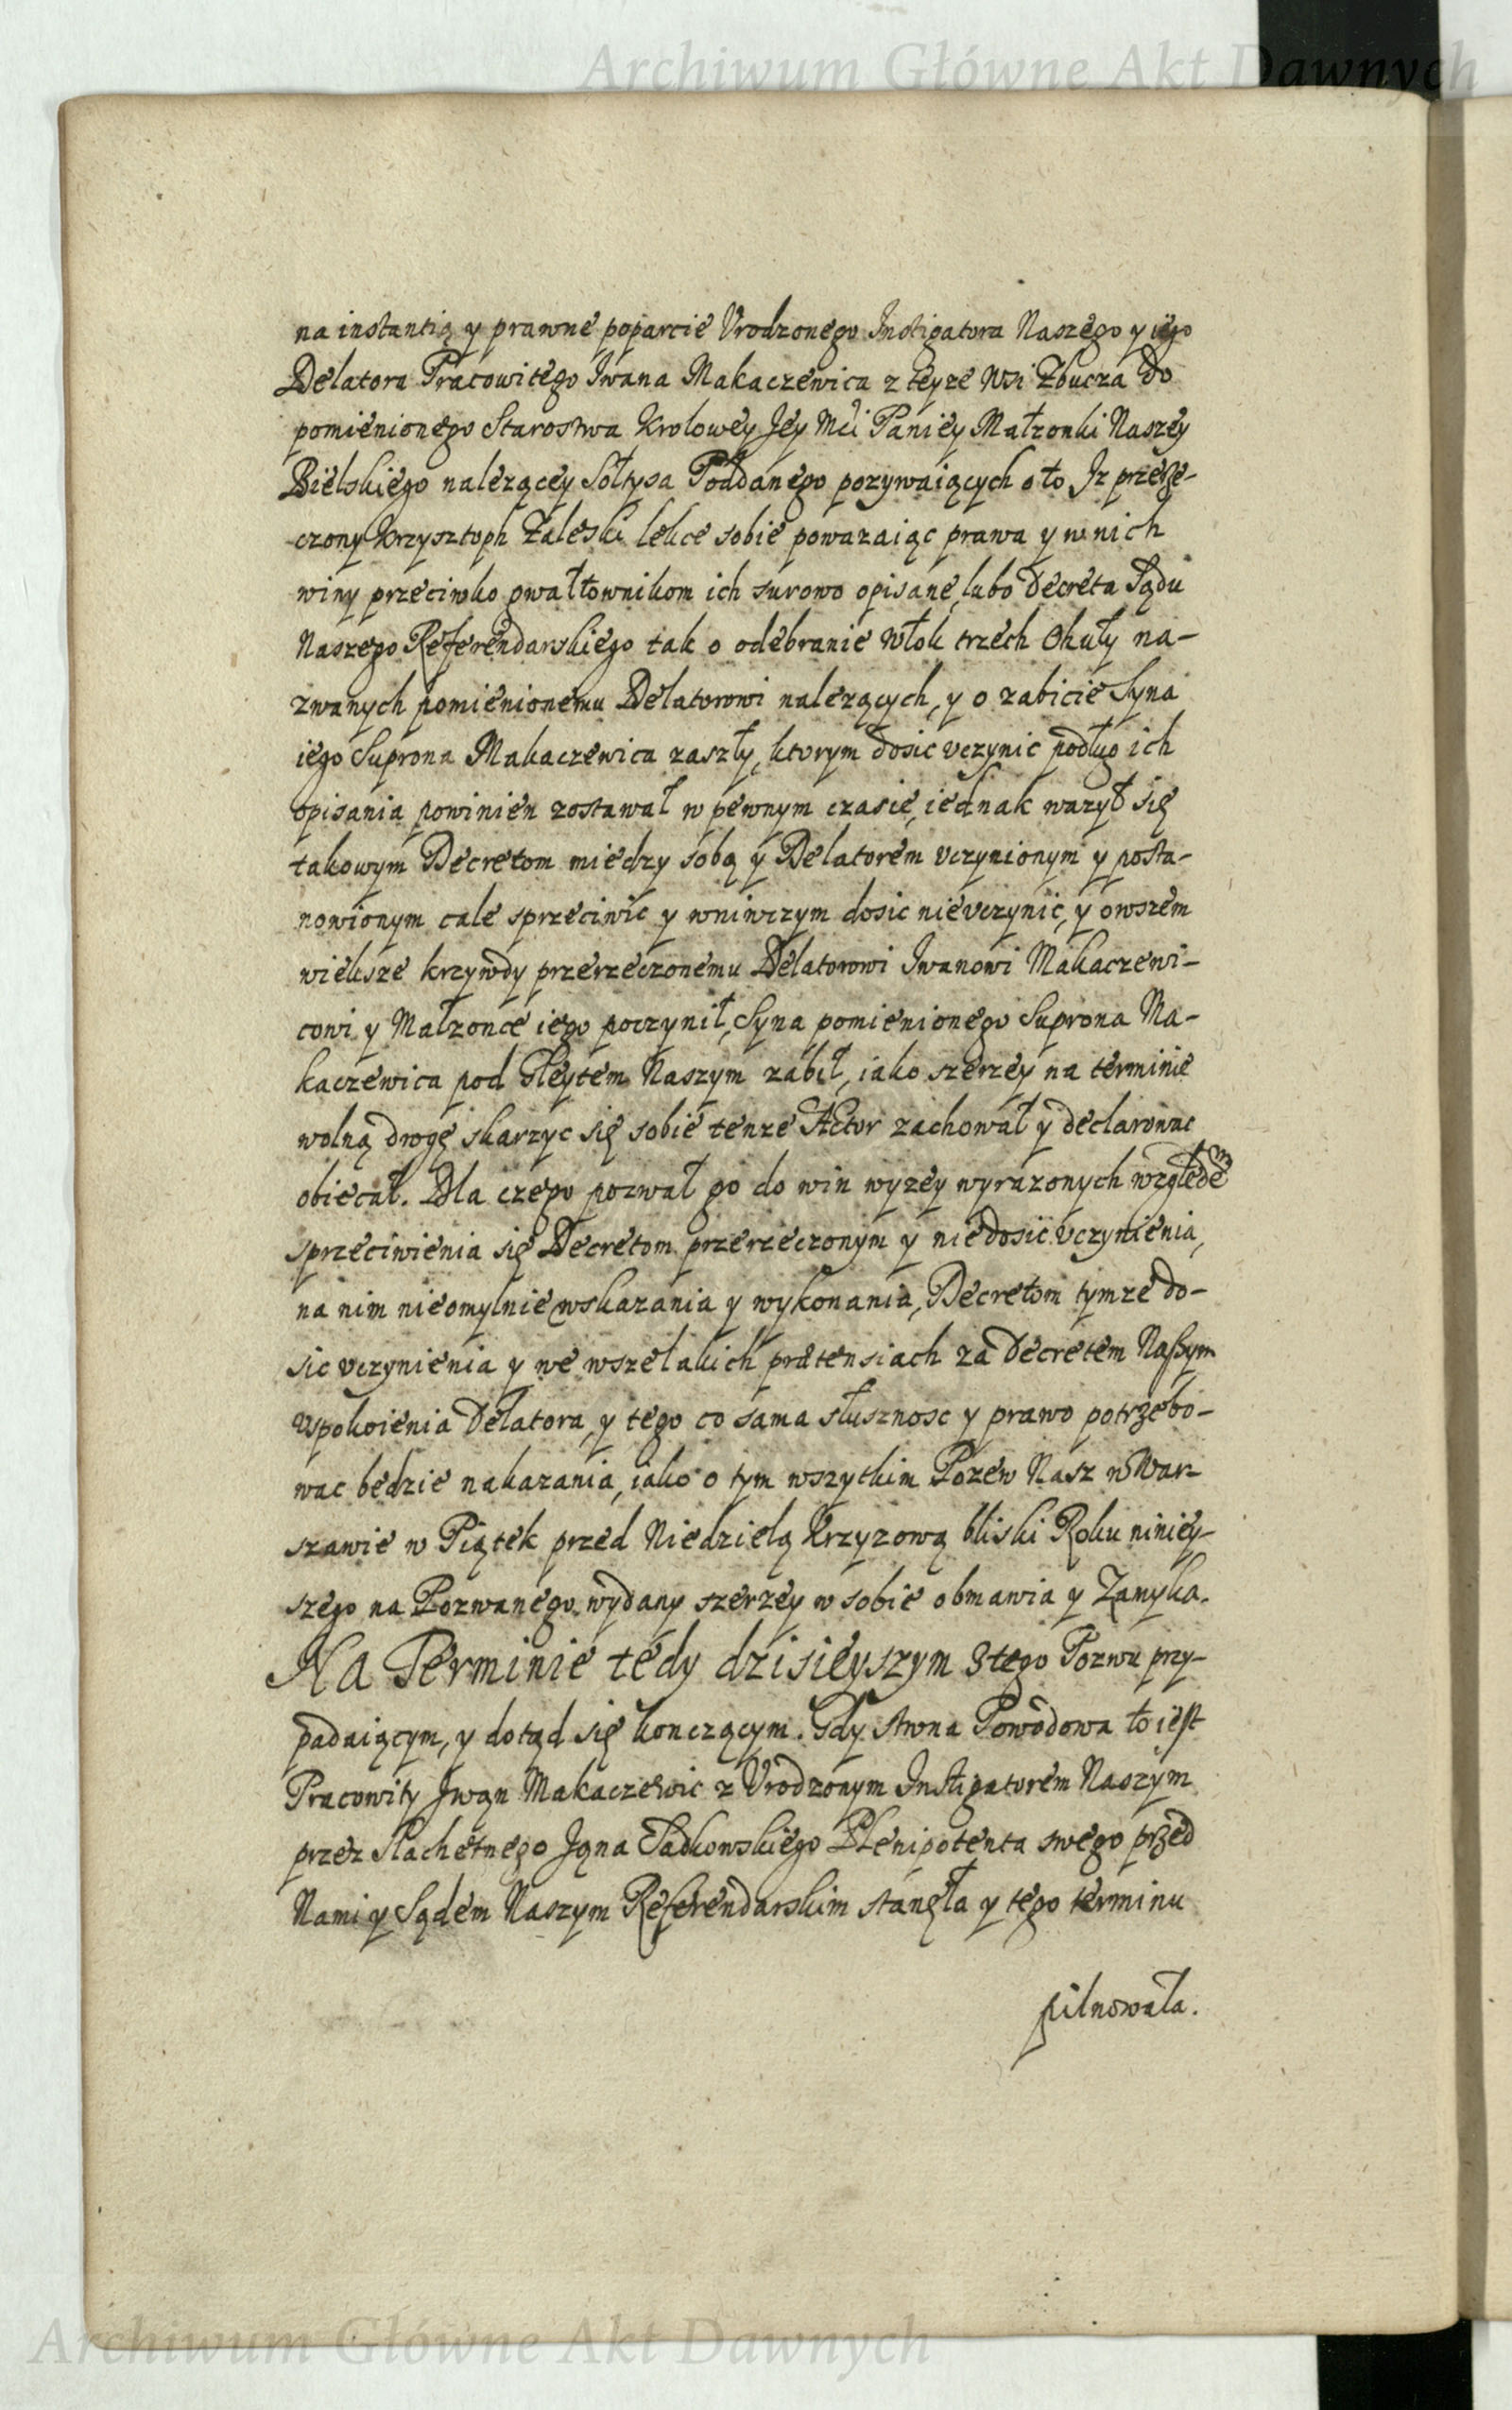 Archiwum Główne Akt Dawnych
na instantią y prawne poparcie Vrodzonego Instigatora Naszego y iego
Delatora Pracowitego Iwana Makaczewica z teyze Wsi Zbucza do
pomienionego Starostwa Krolowey Jey Mći Paniey Małzonki Naszey
Bielskiego nalezącey Sołtysa Poddanego pozywaiących o to Iz przerze-
czony Krzysztoph Zaleski lekce sobie powazaiąc prawa y w nich
winy przeciwko gwałtownikom ich surowo opisane, lubo Decreta Sądu
Naszego Referendarskiego tak o odebranie Włok trzech Okuły na-
zwanych pomienionemu Delatorowi nalezących, y o zabicie Syna
iego Suprona Makaczewica zaszły, ktorym dosic vczynic podług ich
opisania powinien zostawał w pewnym czasie, iednak wazył się
takowym Decretom miedzy sobą y Delatorem vczynionym y posta-
nowionym cale sprzeciwic y wniwczym dosic nievczynic, y owszem
wieksze krzywdy przerzeczonemu Delatorowi Iwanowi Makaczewi-
cowi y Małzonce iego poczynił, Syna pomienionego Suprona Ma-
kaczewica pod Gleytem Naszym zabił, iako szerzey na terminie
wolną drogę skarzyc się sobie tenze Actor zachował y declarowac
obiecał. Dla czego pozwał go do win wyzey wyrazonych względem
sprzeciwienia się Decretom przerzeczonym y niedosic vczynienia,
na nim nieomylnie wskazania y wykonania, Decretom tymze do-
sic vczynienia y we wszelakich prætensiach za Decretem Naszym
vspokoienia Delatora, y tego co sama słusznosc y prawo potrzebo-
wac bedzie nakazania, iako o tym wszytkim Pozew Nasz w War-
szawie w Piątek przed Niedzielą Krzyzową bliski Roku niniey-
szego na Pozwanego wydany szerzey w sobie obmawia y Zamyka.
Na Terminie tedy dzisieyszym z tego Pozwu przy-
padaiącym, y dotąd się konczącym. Gdy strona Powodowa to iest
Pracowity Iwan Makaczewic z Vrodzonym Instigatorem Naszym
przez Slachetnego Jana Sadkowskiego Plenipotenta swego przed
Nami y Sądem Naszym Referendarskim stanęła y tego terminu
pilnowała.
Archiwum Główne Akt Dawnych